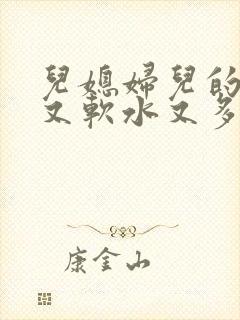 兒媳婦兒的
又軟水又多
康金山